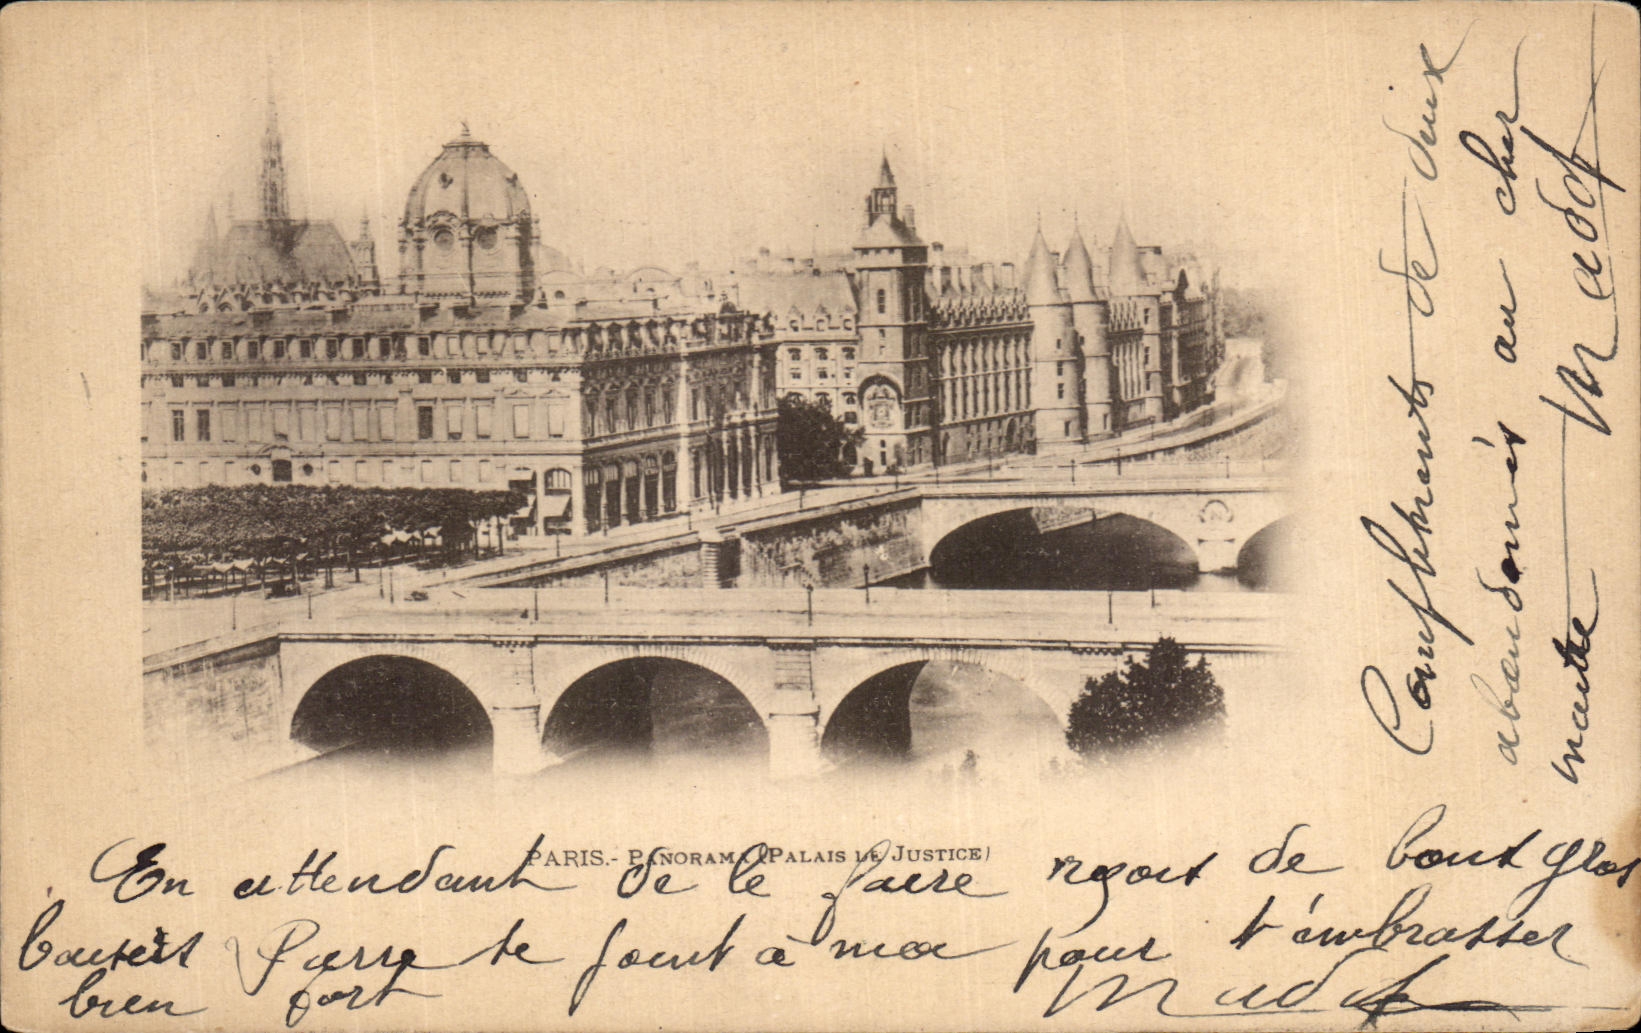 PARIS.- PANORAMA (PALAIS DE JUSTICE)
En attendant de le faire reçois de bons gros
baisers Pierre se joint à moi pour t'embrasser
bien fort
Compliments de deux
abandonnés au cher
maître